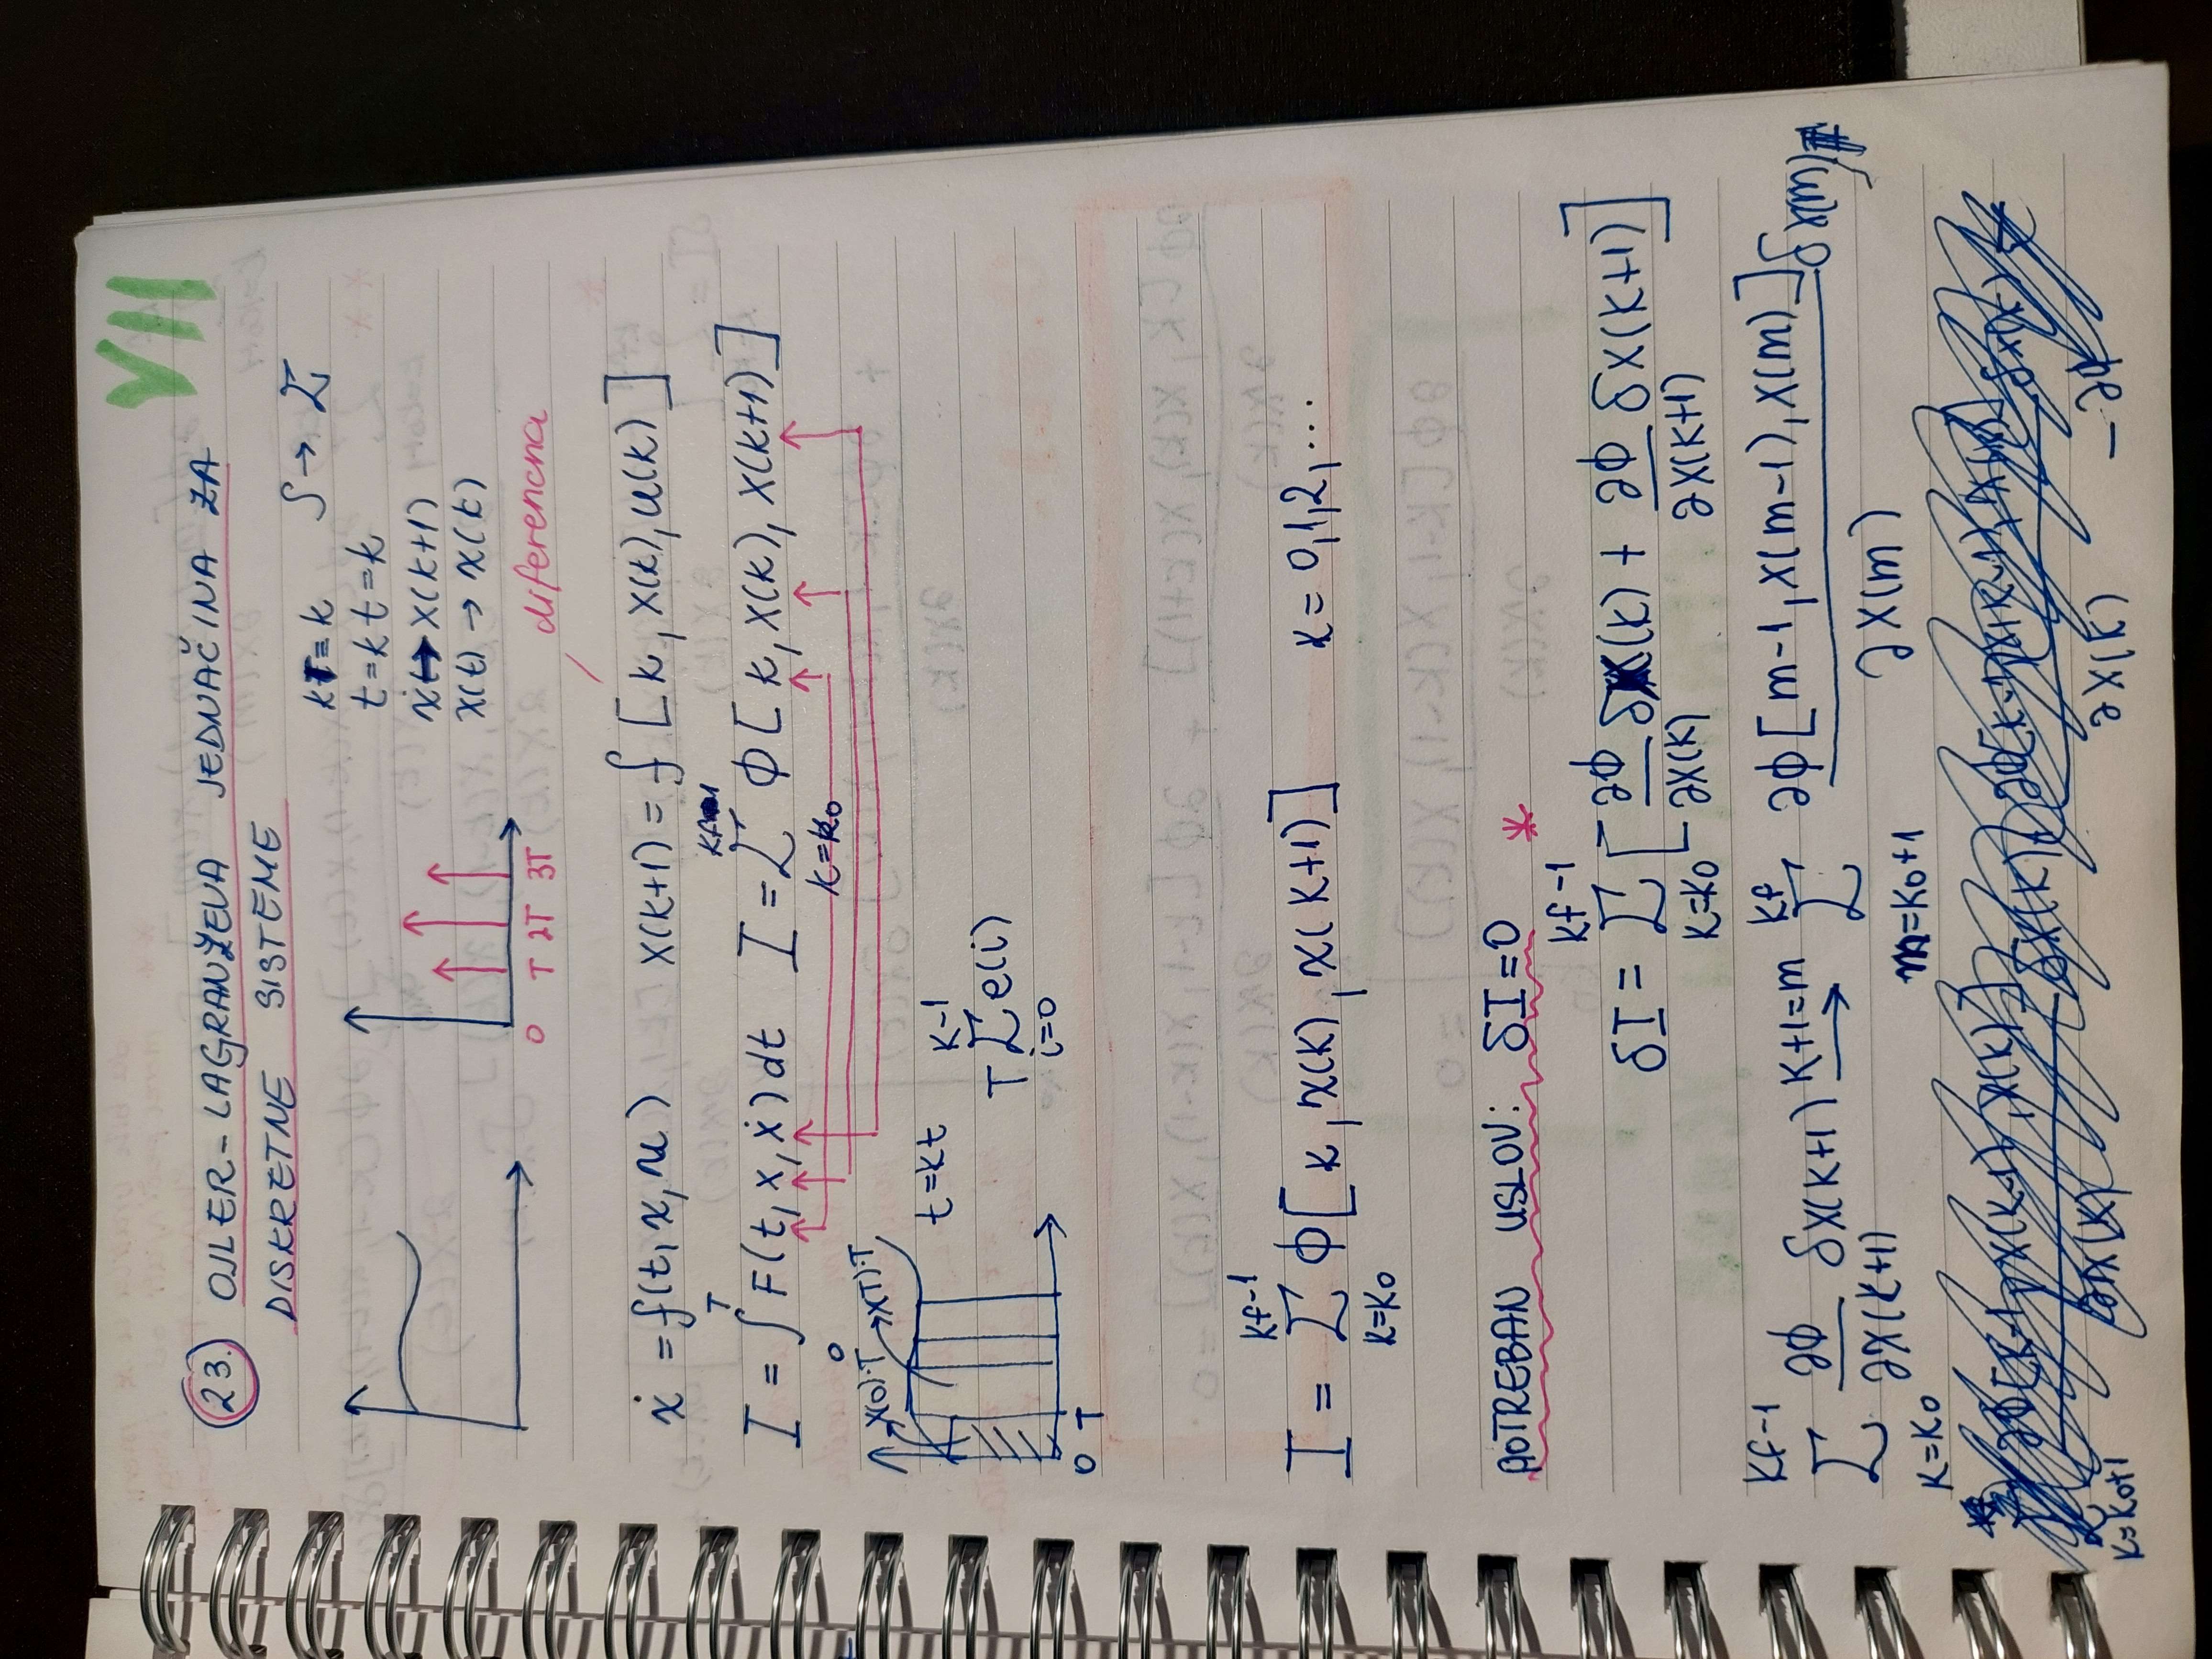 VII
23. OJLER-LAGRANŽEVA JEDNAČINA ZA
DISKRETNE SISTEME
kT = k ∫ → Σ
t = kt = k
ẋ → x(k+1)
x(t) → x(k)
0 T 2T 3T
diferencna
ẋ = f(t, x, u) x(k+1) = f [k, x(t), u(k)]
I = ∫₀ᵀ F(t, x, ẋ) dt I = Σ_{k=k0}^{kf-1} Φ[k, x(k), x(k+1)]
x(0)·T x(T)·T
t = kt
T Σ_{i=0}^{k-1} e(i)
0 T
I = Σ_{k=k0}^{kf-1} Φ[k, x(k), x(k+1)] k = 0,1,2,...
POTREBAN USLOV: δI = 0 *
δI = Σ_{k=k0}^{kf-1} [∂Φ/∂x(k) δx(k) + ∂Φ/∂x(k+1) δx(k+1)]
Σ_{k=k0}^{kf-1} ∂Φ/∂x(k+1) δx(k+1) k+1=m → Σ_{m=k0+1}^{kf} ∂Φ[m-1, x(m-1), x(m)]/∂x(m) δx(m)
k=k0+1 ∂x(k) ∂x(k) -∂Φ